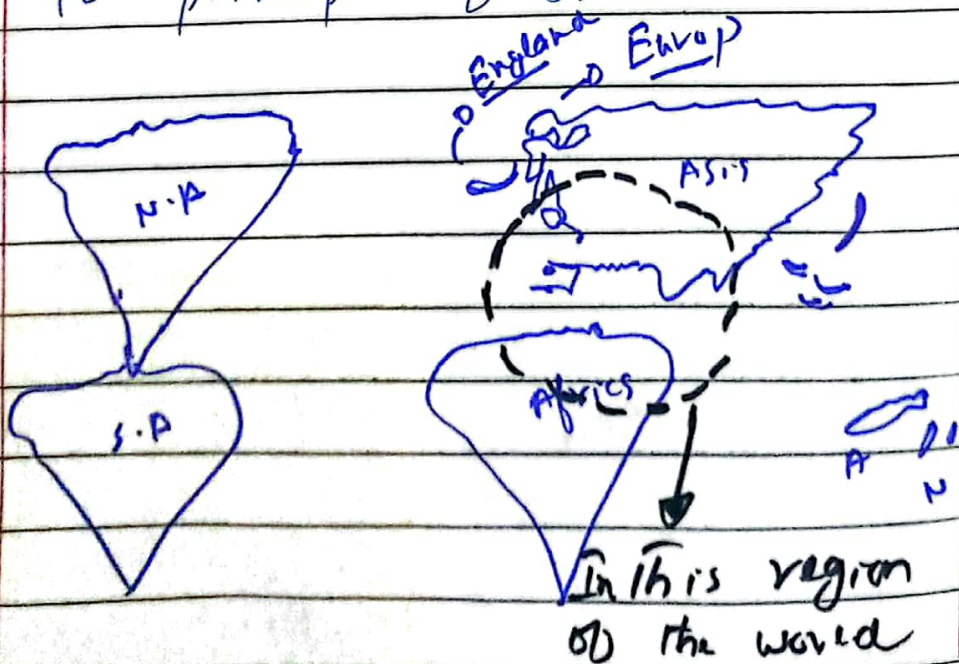 England
Europ
N.A
Asis
S.A
Africs
A
N
In This region
of the world